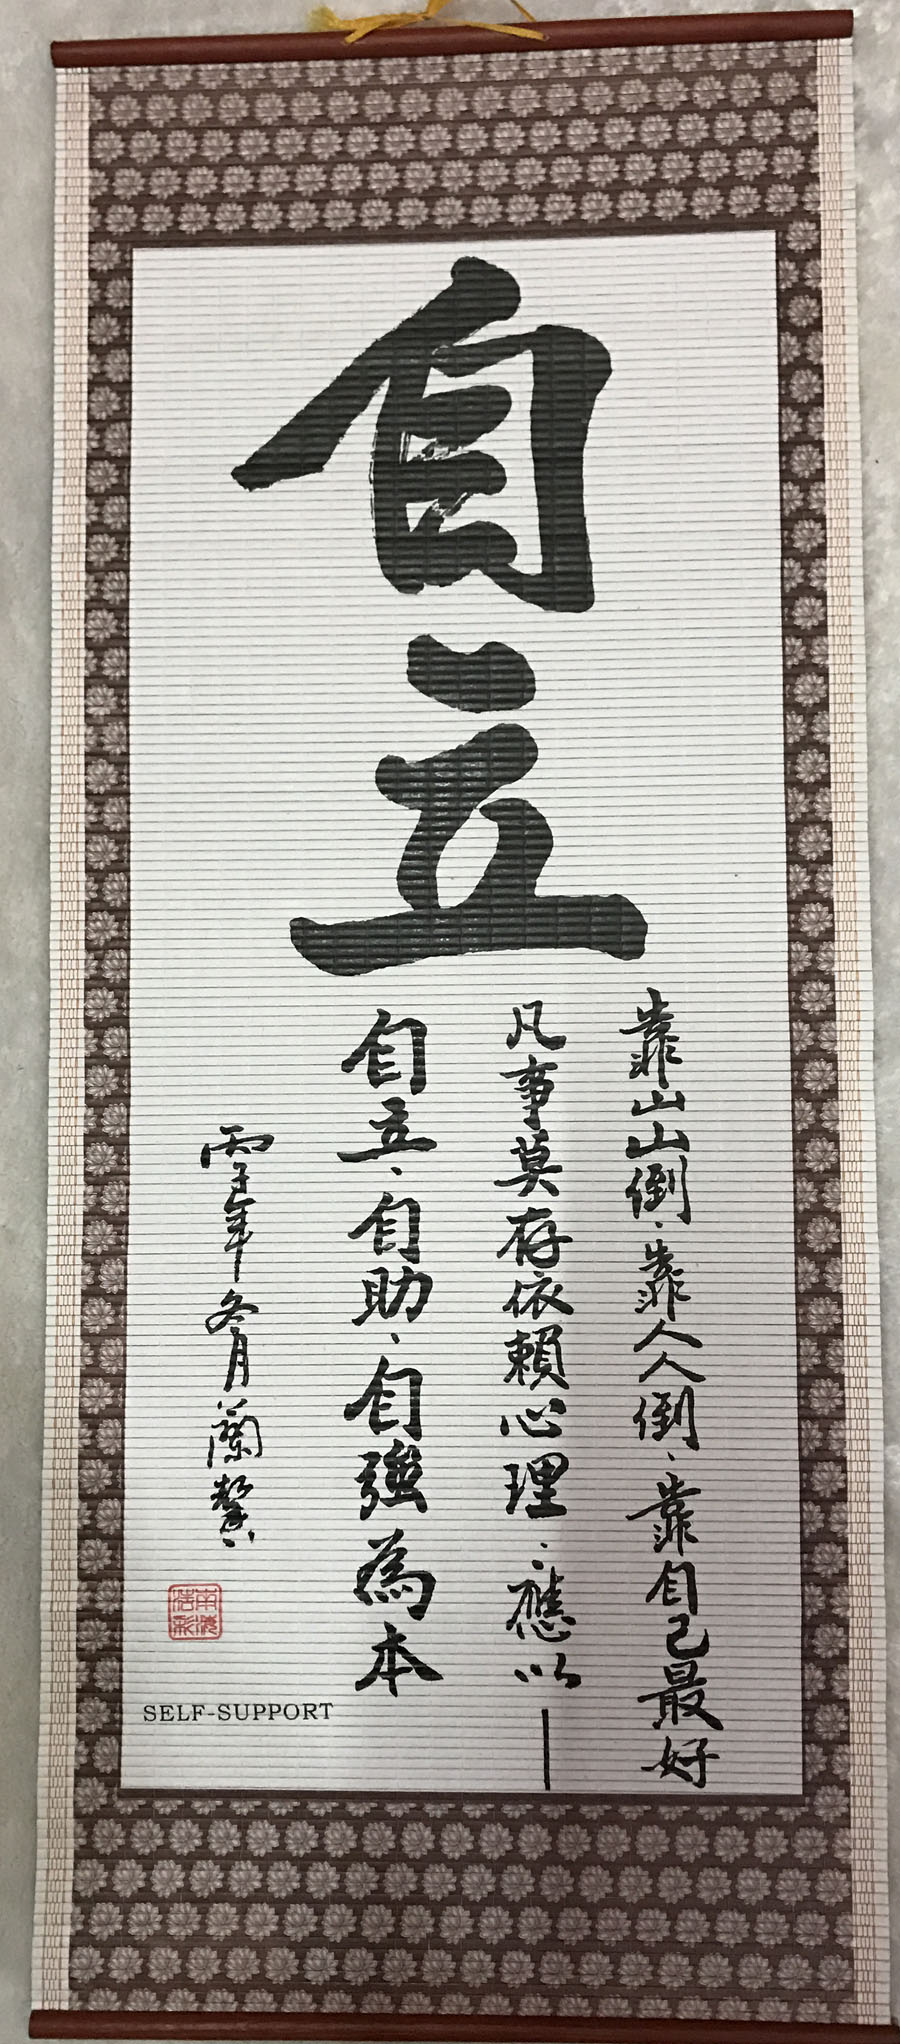 自立
靠山山倒·靠人人倒·靠自己最好
凡事莫存依賴心理·應以—
自立·自助·自強為本
丙子年冬月蘭馨
SELF-SUPPORT